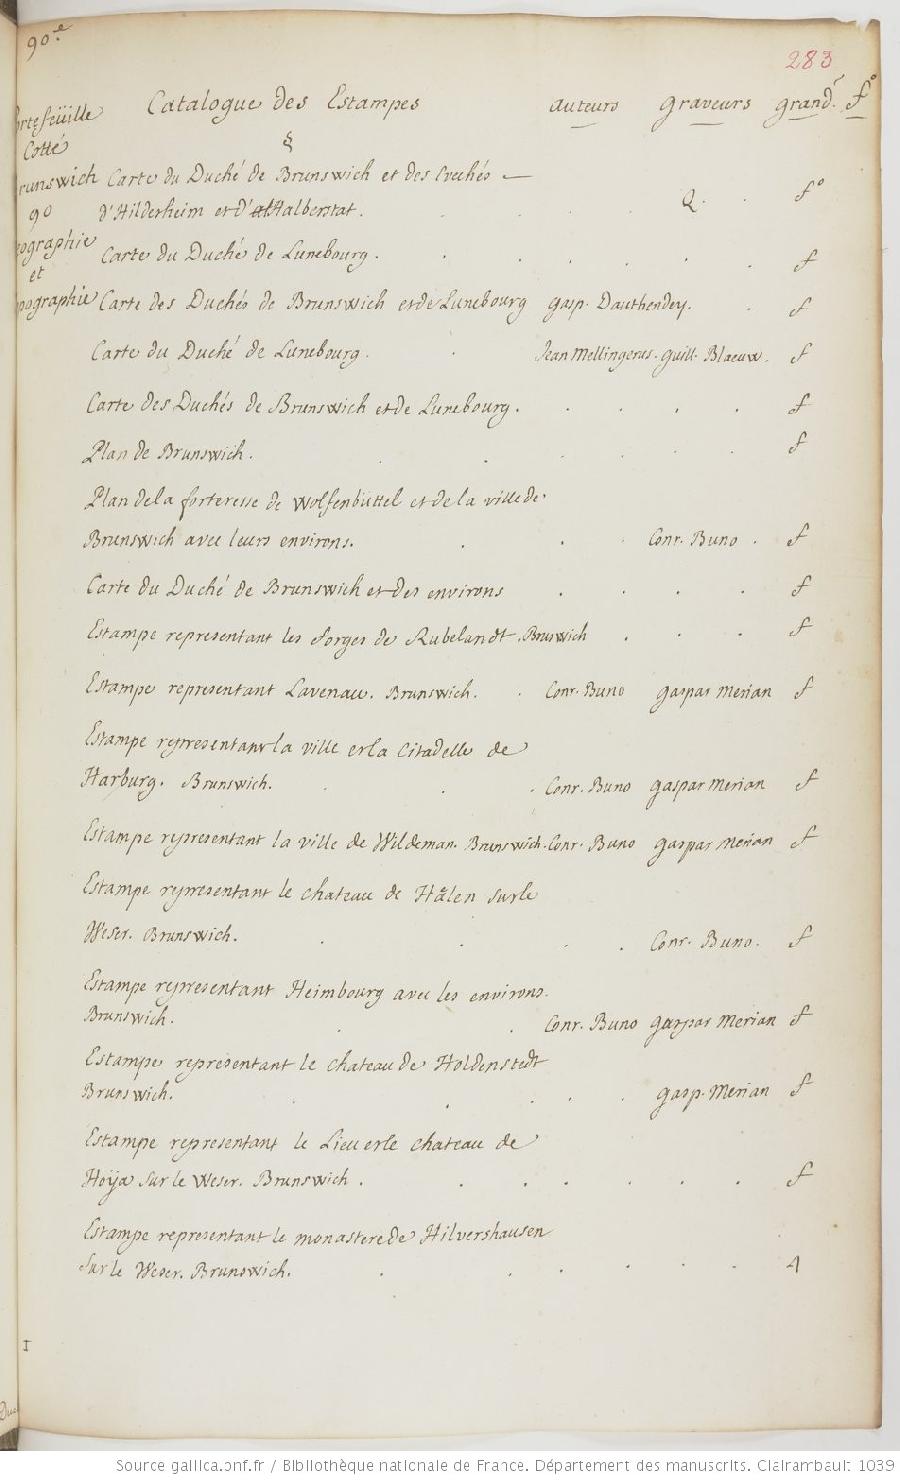 90.e
283
Catalogue des Estampes auteurs graveurs grand.r f.o
Cotté
Carte du Duché de Brunswich et des Evechés
90
d'Hilderheim et d'Halberstat. Q. f.o
et
Carte du Duché de Lunebourg. f
Carte des Duchés de Brunswich et de Lunebourg gasp. Dauthendey. f
Carte du Duché de Lunebourg. Jean Mellingerus. guill. Blaeuw. f
Carte des Duchés de Brunswich et de Lunebourg. f
Plan de Brunswich. f
Plan de la forteresse de Wolfenbuttel et de la ville de
Brunswich avec leurs environs. Conr. Buno. f
Carte du Duché de Brunswich et des environs f
Estampe representant les forges de Rubelandt. Brunswich f
Estampe representant Lavenau. Brunswich. Conr. Buno gaspar Merian f
Estampe representant la ville et la Citadelle de
Harburg. Brunswich. Conr. Buno gaspar Merian f
Estampe representant la ville de Wildeman. Brunswich. Conr. Buno gaspar Merian f
Estampe representant le chateau de Hålen sur le
Weser. Brunswich. Conr. Buno. f
Estampe representant Heimbourg avec les environs.
Brunswich. Conr. Buno gaspar Merian f
Estampe representant le chateau de Holdenstedt
Brunswich. gasp. Merian f
Estampe representant le Lieu et le chateau de
Hoÿa sur le Weser. Brunswich. f
Estampe representant le monastere de Hilvershausen
sur le Weser. Brunswich. 4
I
Source gallica.bnf.fr / Bibliothèque nationale de France. Département des manuscrits. Clairambault 1039